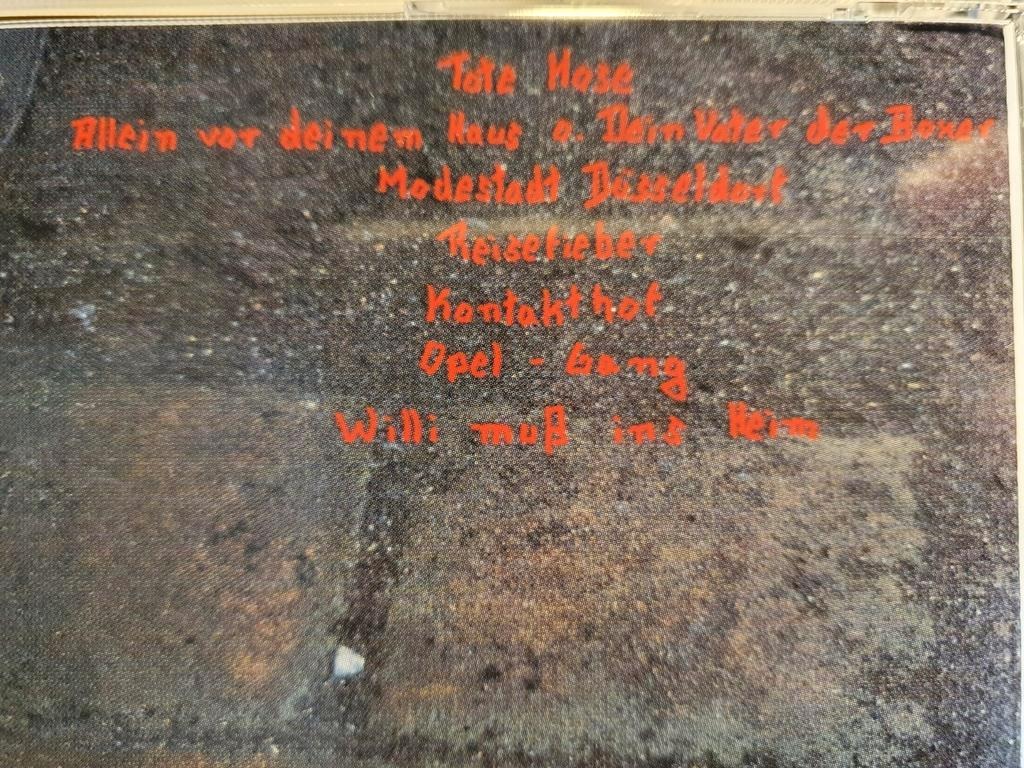 Tote Hose
Allein vor deinem Haus o. Dein Vater der Boxer
Modestadt Düsseldorf
Reisefieber
Kontakthof
Opel - Gang
Willi muß ins Heim